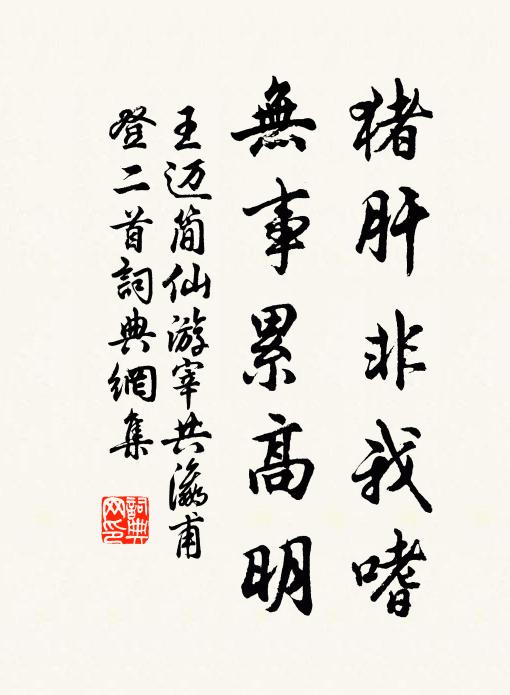 猪肝非我嗜
無事累高明
王迈简仙游宰共瀛甫
登二首詞典網集
詞典網印